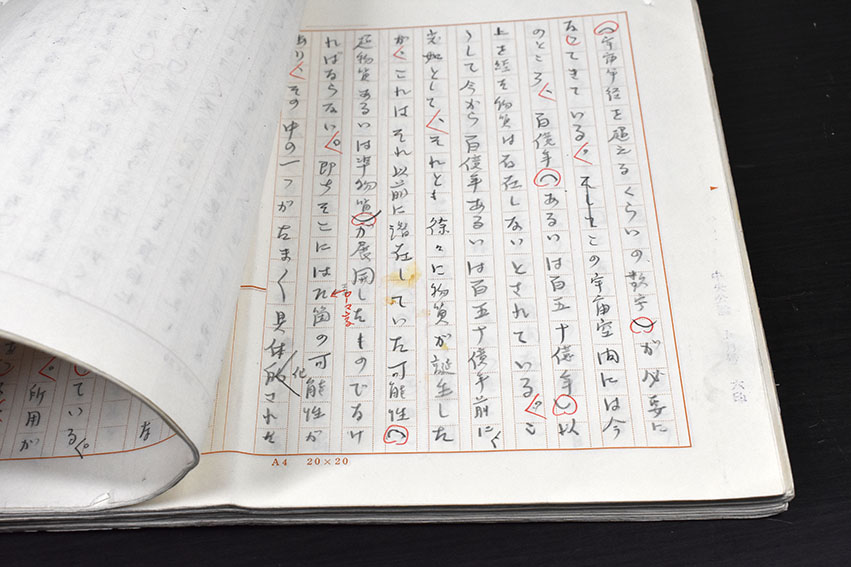 （宇宙半径を超えるくらいの数字）が必要に
なってきている。そしてこの宇宙空間には今
のところ、百億年（あるいは百五十億年）以
上を経た物質は存在しないとされている。こ
うして今から百億年あるいは百五十億年前に、
突如として、それとも徐々に物質が誕生した
が、これはそれ以前に潜在していた可能性（
超物質あるいは準物質）が展開したものでなけ
ればならない。即ちそこにはn箇の可能性が
ローマ字
あり、その中の一つがたま〱具体化された
A4 20×20
な
ている。
所用が